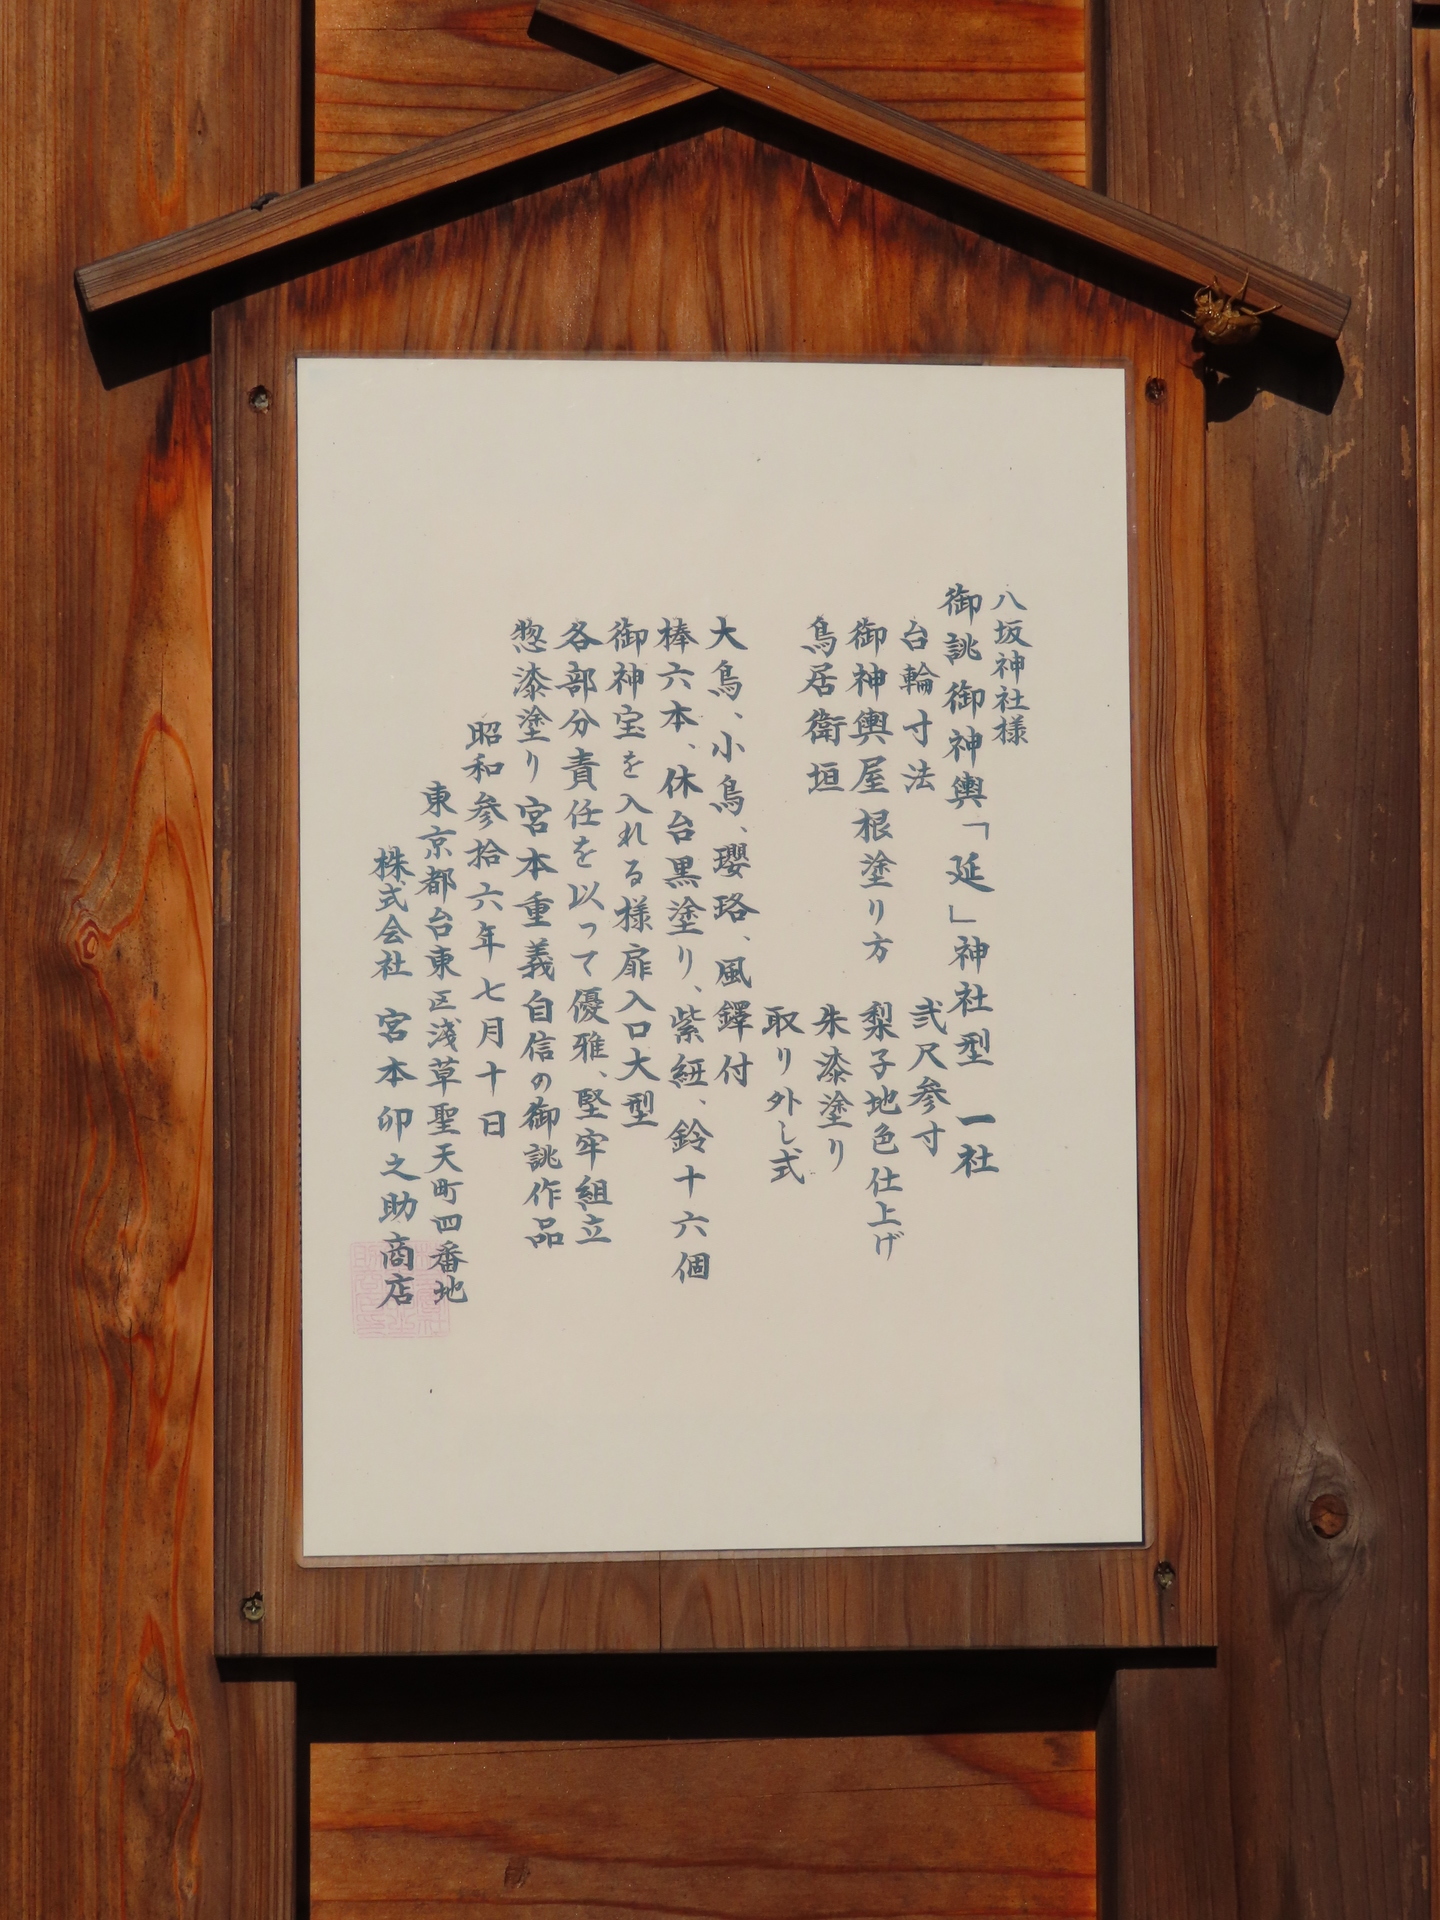 八坂神社様
御誂御神輿「延」神社型　一社
台輪寸法　弐尺参寸
御神輿屋根塗り方　梨子地色仕上げ
鳥居衛垣　朱漆塗り
取り外し式
大鳥、小鳥、瓔珞、風鐸付
棒六本、休台黒塗り、紫紐、鈴十六個
御神宝を入れる様扉入口大型
各部分責任を以って優雅、堅牢組立
惣漆塗り宮本重義自信の御誂作品
昭和参拾六年七月十日
東京都台東区浅草聖天町四番地
株式会社　宮本卯之助商店